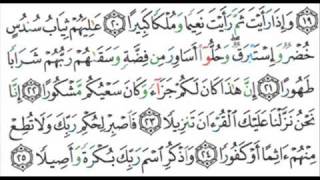 ﴿١٩﴾ وَإِذَا رَأَيْتَ ثَمَّ رَأَيْتَ نَعِيمًا وَمُلْكًا كَبِيرًا ﴿٢٠﴾ عَالِيَهُمْ ثِيَابُ سُندُسٍ
خُضْرٌ وَإِسْتَبْرَقٌ ۖ وَحُلُّوٓا۟ أَسَاوِرَ مِن فِضَّةٍ وَسَقَىٰهُمْ رَبُّهُمْ شَرَابًا
طَهُورًا ﴿٢١﴾ إِنَّ هَٰذَا كَانَ لَكُمْ جَزَآءً وَكَانَ سَعْيُكُم مَّشْكُورًا ﴿٢٢﴾ إِنَّا
نَحْنُ نَزَّلْنَا عَلَيْكَ الْقُرْءَانَ تَنزِيلًا ﴿٢٣﴾ فَاصْبِرْ لِحُكْمِ رَبِّكَ وَلَا تُطِعْ
مِنْهُمْ ءَاثِمًا أَوْ كَفُورًا ﴿٢٤﴾ وَاذْكُرِ اسْمَ رَبِّكَ بُكْرَةً وَأَصِيلًا ﴿٢٥﴾